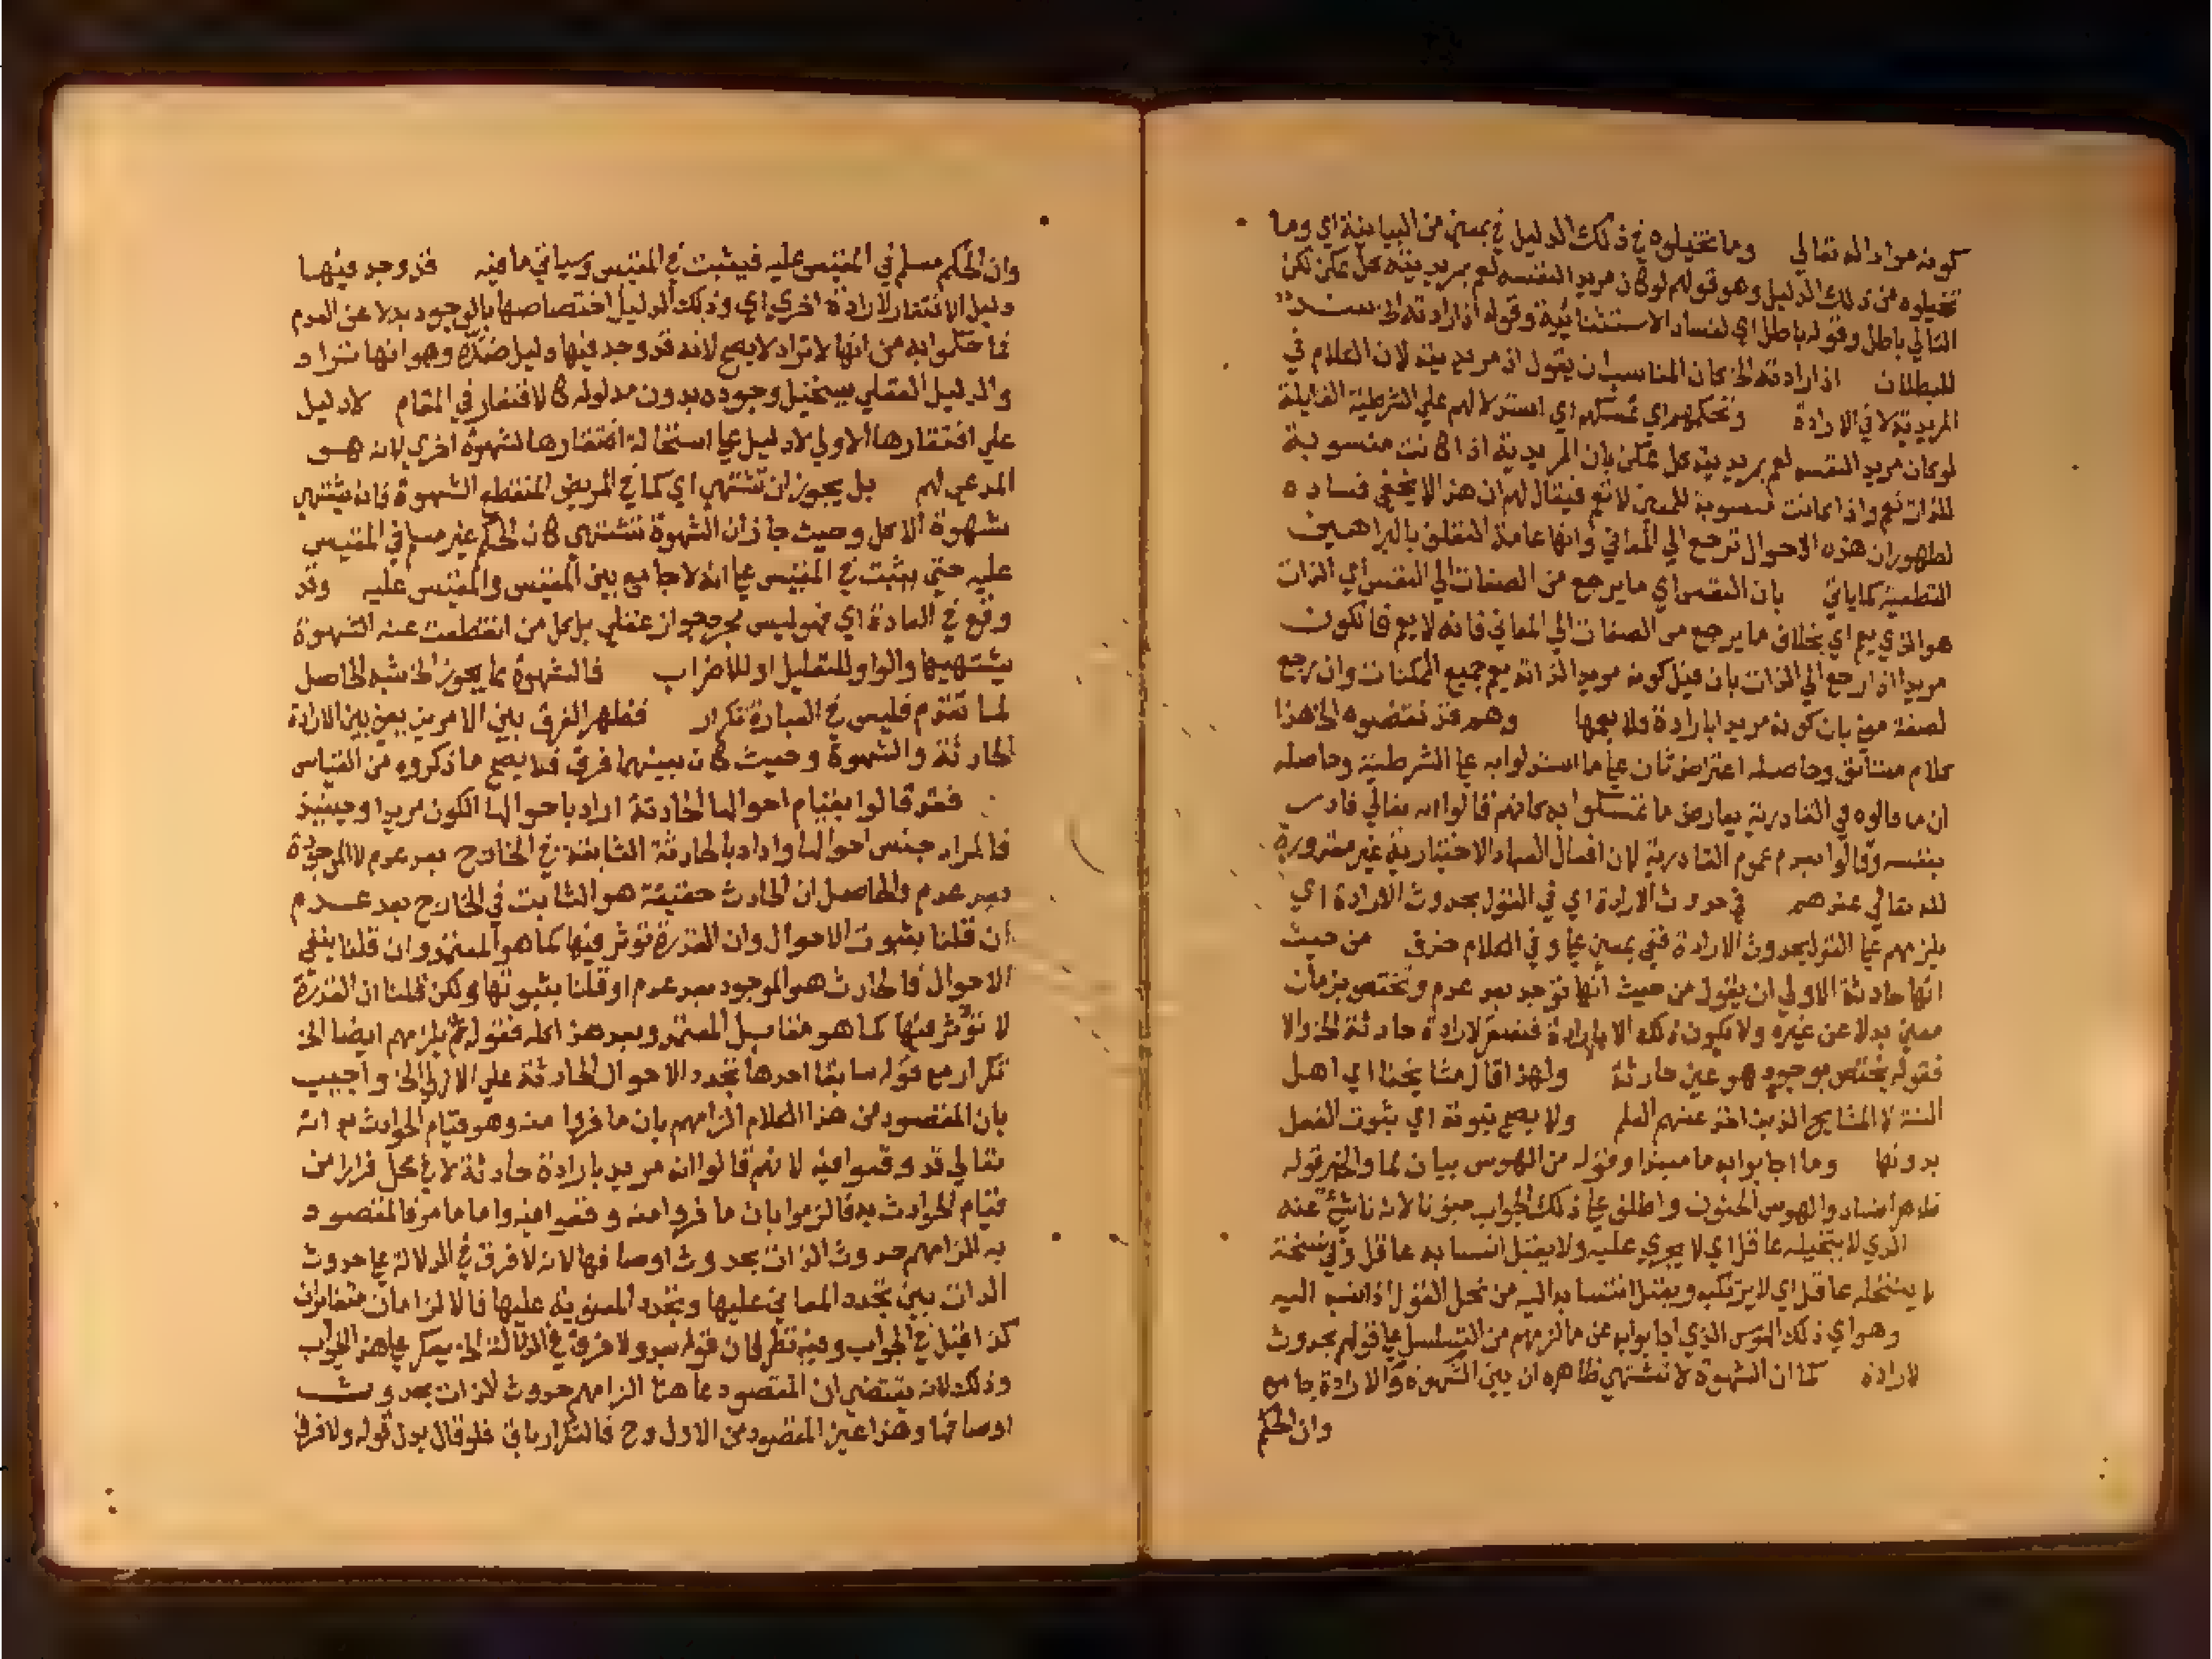 كونه مراد الله تعالي وما تخيلوه في ذلك الدليل في بمعني من البيانية اي وما
تخيلوه من ذلك الدليل وهو قولهم لو كان مريدا لنفسه لعم بمريديته كل ممكن لكن
التالي باطل وقوله باطل اي لفساد الاستثنائية وقوله اذ ارادته الخ سند
للبطلان اذ ارادته الخ كان المناسب ان يقول اذ مريديته لان الكلام في
المريدية لا في الارادة وتحكمهم اي تمسكهم اي استدلالهم علي الشرطية القايلة
لو كان مريدا لنفسه لعم بمريديته كل ممكن بان المريدية اذا كانت منسوبة
للذات تعم واذا كانت منسوبة للمعني لا تعم فيقال لهم ان هذا لا يخفي فساده
لظهور ان هذه الاحوال ترجع الي المعاني وانها عامة التعلق بالبراهين
القطعية كما ياتي بان النفس اي ما يرجع من الصفات الي النفس اي الذات
هو الذي يعم اي بخلاف ما يرجع من الصفات الي المعاني فانه لا يعم فالكون
مريدا ان رجع الي الذات بان قيل كونه مريدا لذاته يعم جميع الممكنات وان رجع
لصفة معني بان كونه مريدا بارادة ولا يعمها وهم قد نقضوه الخ هذا
كلام مستانف وحاصله اعتراض ثان علي ما استدلوا به علي الشرطية وحاصله
ان ما قالوه في القادرية يعارض ما تمسكوا به كانهم قالوا انه تعالي قادر
بنفسه وقالوا بعدم عموم القادرية لان افعال العباد الاختيارية غير مقدورة
لله تعالي عندهم في حدوث الارادة اي في القول بحدوث الارادة اي
يلزمهم علي القول بحدوث الارادة ففي بمعني علي وفي الكلام حذف من حيث
انها حادثة الاولي ان يقول من حيث انها توجد بعد عدم وتختص بزمان
معين بدلا عن غيره ولا يكون ذلك الا بارادة فتفتقر لارادة حادثة الخ والا
فقوله يختص بوجود هو عين حادثة ولهذا قال مشايخنا اي اهل
السنة لا المشايخ الذين اخذ عنهم العلم ولا يصح ثبوته اي ثبوت الفعل
بدونها وما اجابوا به ما مبتدا وقوله من الهوس بيان لما والخبر قوله
ظاهر الفساد والهوس الجنون واطلق علي ذلك الجواب جنونا لانه ناشئ عنه
الذي لا يتخيله عاقل اي لا يجري عليه ولا يقبل انتسابه عاقل وفي نسخة
لا ينتحله عاقل اي لا يرتكبه ويقبل انتسابه اليه من نحل القول اذا نسب اليه
وهو اي ذلك الهوس الذي اجابوا به عن ما لزمهم من التسلسل علي قولهم بحدوث
لارادة كما ان الشهوة لا تشتهي ظاهره ان بين الشهوة والارادة جامع
وان الحكم
وان الحكم مسلم في المقيس عليه فيثبت في المقيس وسياتي ما فيه قد وجد فيها
دليل الافتقار لارادة اخري اي وذلك الدليل اختصاصها بالوجود بدلا عن العدم
فما حكموا به من انها لا تراد لا يصح لانه قد وجد فيها دليل ضده وهو انها تراد
والدليل العقلي يستحيل وجوده بدون مدلوله كالافتقار في المقام لا دليل
علي افتقارها الاولي لا دليل علي استحالة افتقارها لشهوة اخري لانه هو
المدعي لهم بل يجوز ان تشتهي اي كما في المريض المنقطع الشهوة فانه يشتهي
شهوة الاكل وحيث جاز ان الشهوة تشتهي كان الحكم غير مسلم في المقيس
عليه حتي يثبت في المقيس علي انه لا جامع بين المقيس والمقيس عليه وقد
وقع في العادة اي فهو ليس مجرد جواز عقلي بل كل من انقطعت عنه الشهوة
يشتهيها والواو للتعليل او للاضراب فالشهوة مما يجوز الخ شبه الحاصل
لما تقدم فليس في العبارة تكرار فظهر الفرق بين الامرين يعني بين الارادة
الحادثة والشهوة وحيث كان بينهما فرق فلا يصح ما ذكروه من القياس
فقد قالوا بقيام احوالها الحادثة اراد باحوالها الكون مريدا وحينئذ
فالمراد جنس احوالها واراد بالحادثة الثابتة في الخارج بعد عدم لا الموجودة
بعد عدم والحاصل ان الحادث حقيقة هو الثابت في الخارج بعد عدم
ان قلنا بثبوت الاحوال وان القدرة تؤثر فيها كما هو المعتمد وان قلنا بنفي
الاحوال فالحادث هو الموجود بعد عدم او قلنا بثبوتها ولكن قلنا ان القدرة
لا تؤثر فيها كما هو مقابل المعتمد وبعد هذا كله فقوله ثم يلزمهم ايضا الخ
تكرار مع قوله سابقا احدها تجدد الاحوال الحادثة علي الازلي الخ واجيب
بان المقصود من هذا الكلام الزامهم بان ما فروا منه وهو قيام الحوادث به انه
تعالي قد وقعوا فيه لانهم قالوا انه مريد بارادة حادثة لا في محل فرارا من
قيام الحوادث به فالزموا بان ما فروا منه وقعوا فيه واما ما مر فالمقصود
به الزامهم حدوث الذات بحدوث اوصافها لانه لا فرق في الدلالة علي حدوث
الذات بين تجدد المعاني عليها وتجدد المعنوية عليها فالالزامان متغايران
كذا قيل في الجواب وفيه نظر لان قوله بعد ولا فرق في الدلالة الخ يعكر علي هذا الجواب
وذلك لانه يقتضي ان المقصود هنا الزامهم حدوث لذات بحدوث
اوصافها وهذا عين المقصود من الاول وح فالتكرار باق فلو قال بدل قوله ولا فرق